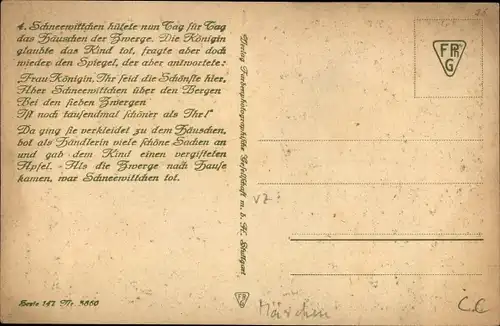 4. Schneewittchen hütete nun Tag für Tag
das Häuschen der Zwerge. Die Königin
glaubte das Kind tot, fragte aber doch
wieder den Spiegel, der aber antwortete:
„Frau Königin, Ihr seid die Schönste hier,
Aber Schneewittchen über den Bergen
Bei den sieben Zwergen
Ist noch tausendmal schöner als Ihr!“
Da ging sie verkleidet zu dem Häuschen,
bot als Händlerin viele schöne Sachen an
und gab dem Kind einen vergifteten
Apfel. - Als die Zwerge nach Hause
kamen, war Schneewittchen tot.
Serie 147 Nr. 3860
Verlag Farbenphotographische Gesellschaft m. b. H. Stuttgart
FPhG
VZ
Märchen